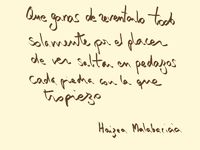 Que ganas de reventarlo todo
solamente por el placer
de ver saltar en pedazos
cada piedra con la que
tropiezo